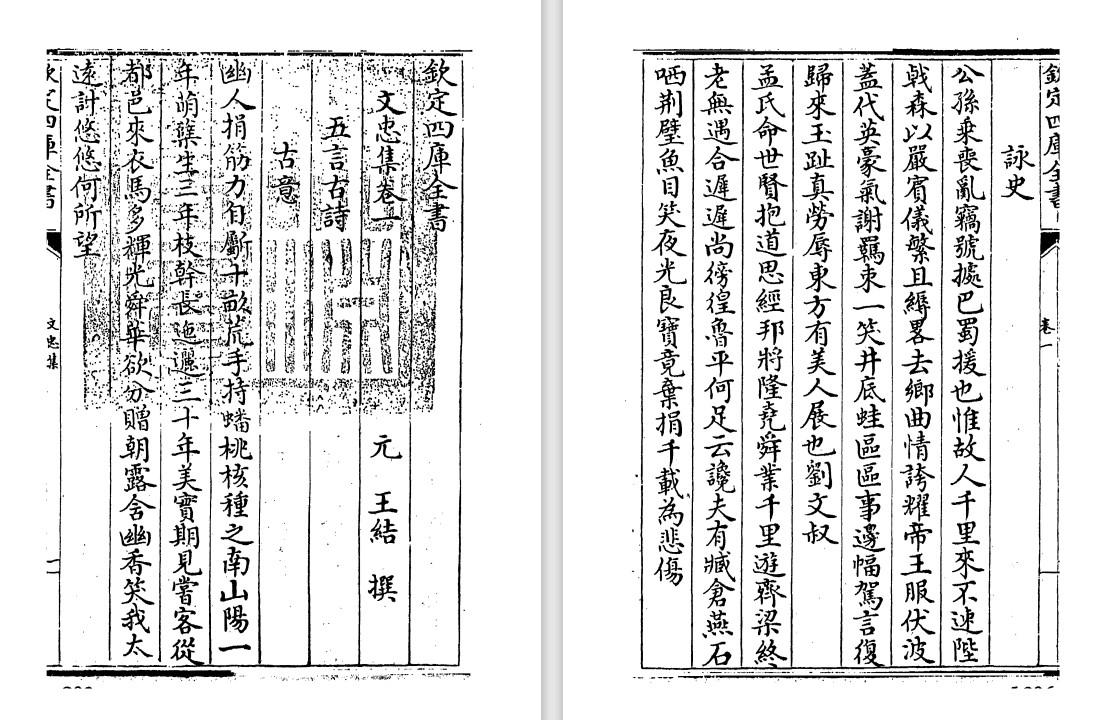 欽定四庫全書
文忠集卷一 元 王結 撰
五言古詩
古意
幽人捐筋力自斸十畝荒手持蟠桃核種之南山陽一
年萌蘖生三年枝幹長迤邐三十年美實期見嘗客從
都邑來衣馬多輝光舜華欲分贈朝露含幽香笑我太
遠計悠悠何所望
欽定四庫全書 文忠集 一
欽定四庫全書 卷一
詠史
公孫乘喪亂竊號據巴蜀援也惟故人千里來不速陛
戟森以嚴賓儀繁且縟畧去鄉曲情誇耀帝王服伏波
蓋代英豪氣謝羈束一笑井底蛙區區事邊幅駕言復
歸來玉趾真勞辱東方有美人展也劉文叔
孟氏命世賢抱道思經邦將隆堯舜業千里遊齊梁終
老無遇合遲遲尚徬徨魯平何足云讒夫有臧倉燕石
哂荆璧魚目笑夜光良寶竟棄捐千載為悲傷